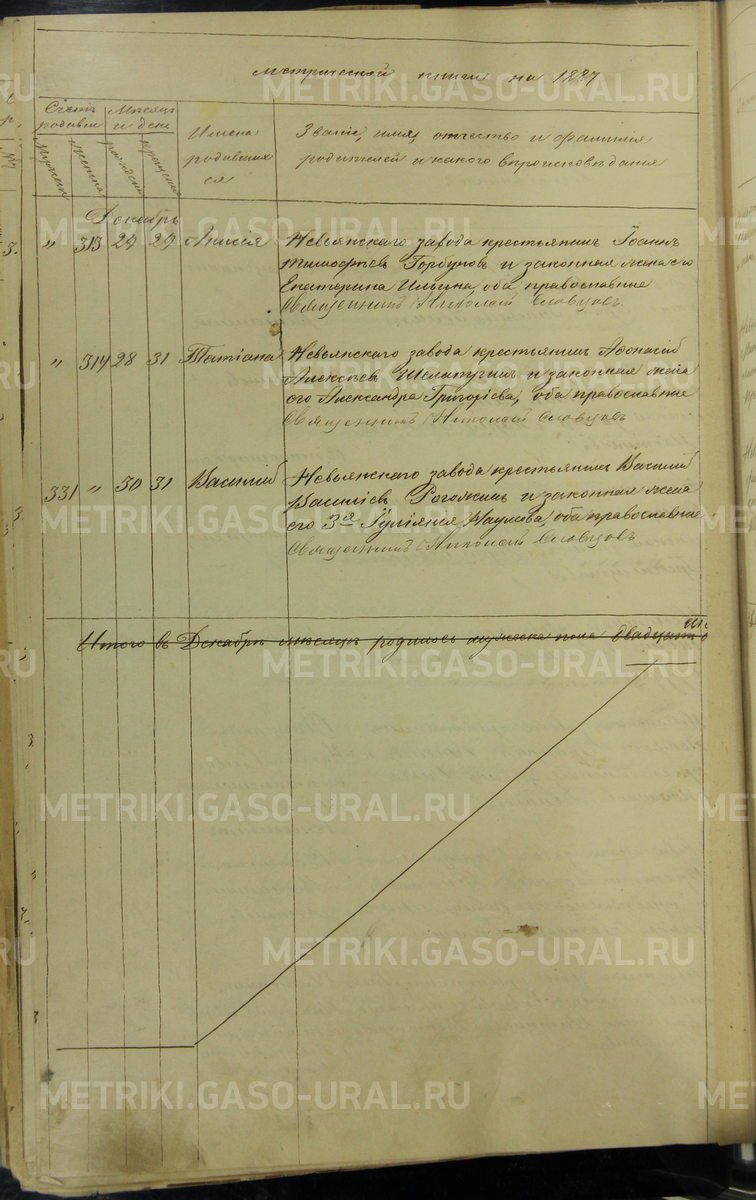 метрической книги на 1887
Счетъ родивш
Мѣсяцъ и день
Имена родившихся
Званіе, имя, отчество и фамилія
родителей и какого вѣроисповѣданія
мужеска
женска
рожденія
крещенія
Декабрь
" 313 27 29 Анисія Невьянскаго завода крестьянинъ Іоаннъ
Тимофѣевъ Горбуновъ и законная жена его
Екатерина Ильина, оба православные
Священникъ Николай Словцовъ
" 314 28 31 Татіана Невьянскаго завода крестьянинъ Афонасій
Алексѣевъ Шелапугинъ и законная жена
его Александра Григоріева, оба православные
Священникъ Николай Словцовъ
331 " 30 31 Василій Невьянскаго завода крестьянинъ Василій
Василіевъ Рогожинъ и законная жена
его 3я Іуліянія Наумова, оба православные
Священникъ Николай Словцовъ
Итого въ Декабрѣ мѣсяцѣ родилось мужеска пола двадцать
METRIKI.GASO-URAL.RU